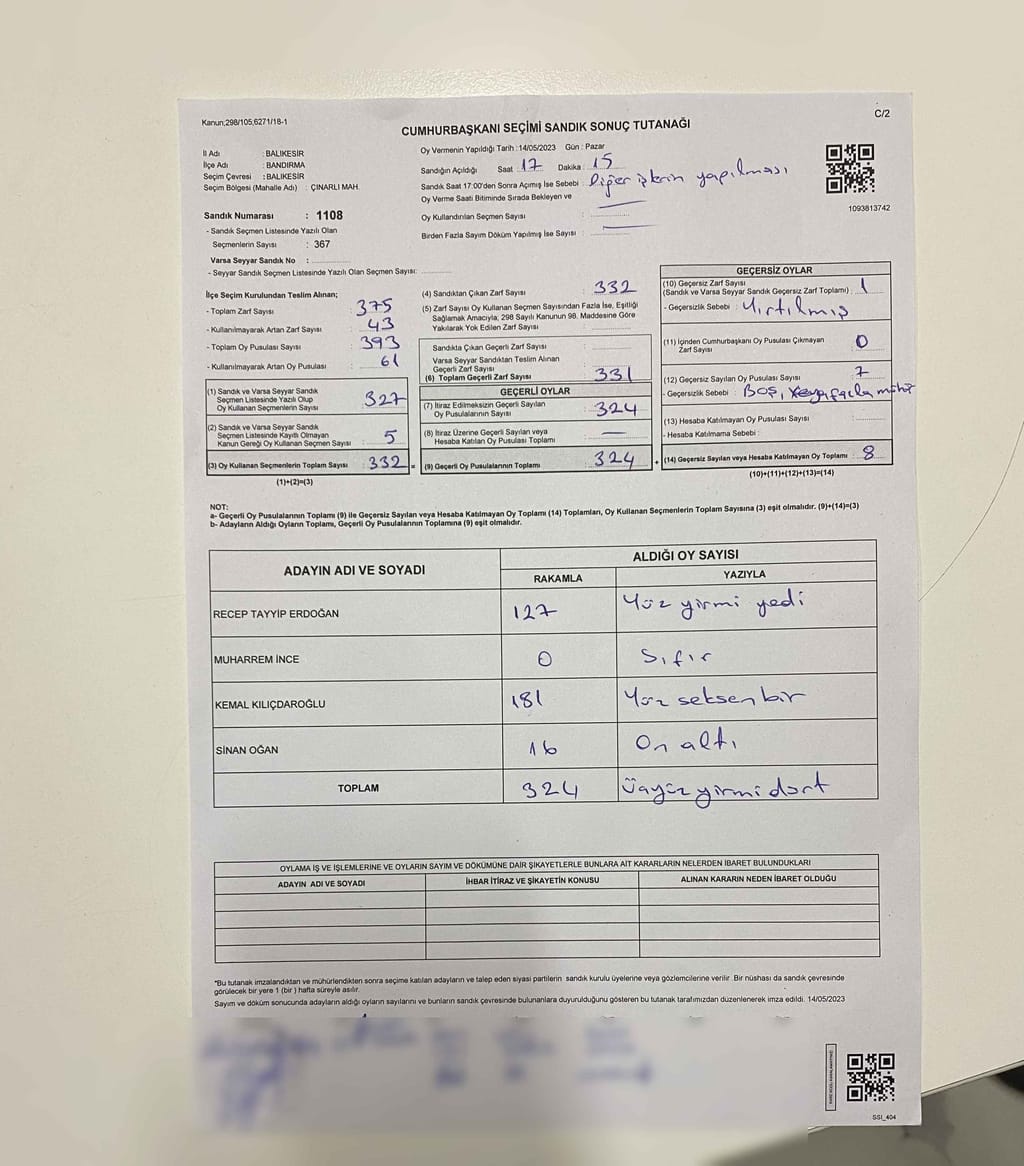 Kanun;298/105,6271/18-1
C/2
CUMHURBAŞKANI SEÇİMİ SANDIK SONUÇ TUTANAĞI
İl Adı : BALIKESİR
İlçe Adı : BANDIRMA
Seçim Çevresi : BALIKESİR
Seçim Bölgesi (Mahalle Adı) : ÇINARLI MAH.
Sandık Numarası : 1108
- Sandık Seçmen Listesinde Yazılı Olan
Seçmenlerin Sayısı : 367
Varsa Seyyar Sandık No :
- Seyyar Sandık Seçmen Listesinde Yazılı Olan Seçmen Sayısı:
Oy Vermenin Yapıldığı Tarih : 14/05/2023 Gün : Pazar
Sandığın Açıldığı Saat 17 Dakika : 15
Sandık Saat 17:00'den Sonra Açımış İse Sebebi : Diğer işlerin yapılması
Oy Verme Saati Bitiminde Sırada Bekleyen ve
Oy Kullandırılan Seçmen Sayısı :
Birden Fazla Sayım Döküm Yapılmış İse Sayısı :
1093813742
İlçe Seçim Kurulundan Teslim Alınan;
- Toplam Zarf Sayısı : 375
- Kullanılmayarak Artan Zarf Sayısı : 43
- Toplam Oy Pusulası Sayısı : 393
- Kullanılmayarak Artan Oy Pusulası : 61
(1) Sandık ve Varsa Seyyar Sandık
Seçmen Listesinde Yazılı Olup
Oy Kullanan Seçmenlerin Sayısı : 327
(2) Sandık ve Varsa Seyyar Sandık
Seçmen Listesinde Kayıtlı Olmayan
Kanun Gereği Oy Kullanan Seçmen Sayısı : 5
(3) Oy Kullanan Seçmenlerin Toplam Sayısı : 332 =
(1)+(2)=(3)
(4) Sandıktan Çıkan Zarf Sayısı : 332
(5) Zarf Sayısı Oy Kullanan Seçmen Sayısından Fazla İse, Eşitliği
Sağlamak Amacıyla; 298 Sayılı Kanunun 98. Maddesine Göre
Yakılarak Yok Edilen Zarf Sayısı :
Sandıkta Çıkan Geçerli Zarf Sayısı :
Varsa Seyyar Sandıktan Teslim Alınan
Geçerli Zarf Sayısı :
(6) Toplam Geçerli Zarf Sayısı : 331
GEÇERLİ OYLAR
(7) İtiraz Edilmeksizin Geçerli Sayılan
Oy Pusulalarının Sayısı : 324
(8) İtiraz Üzerine Geçerli Sayılan veya
Hesaba Katılan Oy Pusulası Toplamı : —
(9) Geçerli Oy Pusulalarının Toplamı : 324 +
GEÇERSİZ OYLAR
(10) Geçersiz Zarf Sayısı
(Sandık ve Varsa Seyyar Sandık Geçersiz Zarf Toplamı) : 1
- Geçersizlik Sebebi : Yırtılmış
(11) İçinden Cumhurbaşkanı Oy Pusulası Çıkmayan
Zarf Sayısı : 0
(12) Geçersiz Sayılan Oy Pusulası Sayısı : 7
- Geçersizlik Sebebi : Boş, veya fazla mühür
(13) Hesaba Katılmayan Oy Pusulası Sayısı :
- Hesaba Katılmama Sebebi :
(14) Geçersiz Sayılan veya Hesaba Katılmayan Oy Toplamı : 8
(10)+(11)+(12)+(13)=(14)
NOT:
a- Geçerli Oy Pusulalarının Toplamı (9) ile Geçersiz Sayılan veya Hesaba Katılmayan Oy Toplamı (14) Toplamları, Oy Kullanan Seçmenlerin Toplam Sayısına (3) eşit olmalıdır. (9)+(14)=(3)
b- Adayların Aldığı Oyların Toplamı, Geçerli Oy Pusulalarının Toplamına (9) eşit olmalıdır.
ADAYIN ADI VE SOYADI
ALDIĞI OY SAYISI
RAKAMLA YAZIYLA
RECEP TAYYİP ERDOĞAN 127 Yüz yirmi yedi
MUHARREM İNCE 0 Sıfır
KEMAL KILIÇDAROĞLU 181 Yüz seksen bir
SİNAN OĞAN 16 On altı
TOPLAM 324 Üçyüz yirmi dört
OYLAMA İŞ VE İŞLEMLERİNE VE OYLARIN SAYIM VE DÖKÜMÜNE DAİR ŞİKAYETLERLE BUNLARA AİT KARARLARIN NELERDEN İBARET BULUNDUKLARI
ADAYIN ADI VE SOYADI İHBAR İTİRAZ VE ŞİKAYETİN KONUSU ALINAN KARARIN NEDEN İBARET OLDUĞU
*Bu tutanak imzalandıktan ve mühürlendikten sonra seçime katılan adayların ve talep eden siyasi partilerin sandık kurulu üyelerine veya gözlemcilerine verilir. Bir nüshası da sandık çevresinde
görülecek bir yere 1 (bir ) hafta süreyle asılır.
Sayım ve döküm sonucunda adayların aldığı oyların sayılarını ve bunların sandık çevresinde bulunanlara duyurulduğunu gösteren bu tutanak tarafımızdan düzenlenerek imza edildi. 14/05/2023
SSI_404